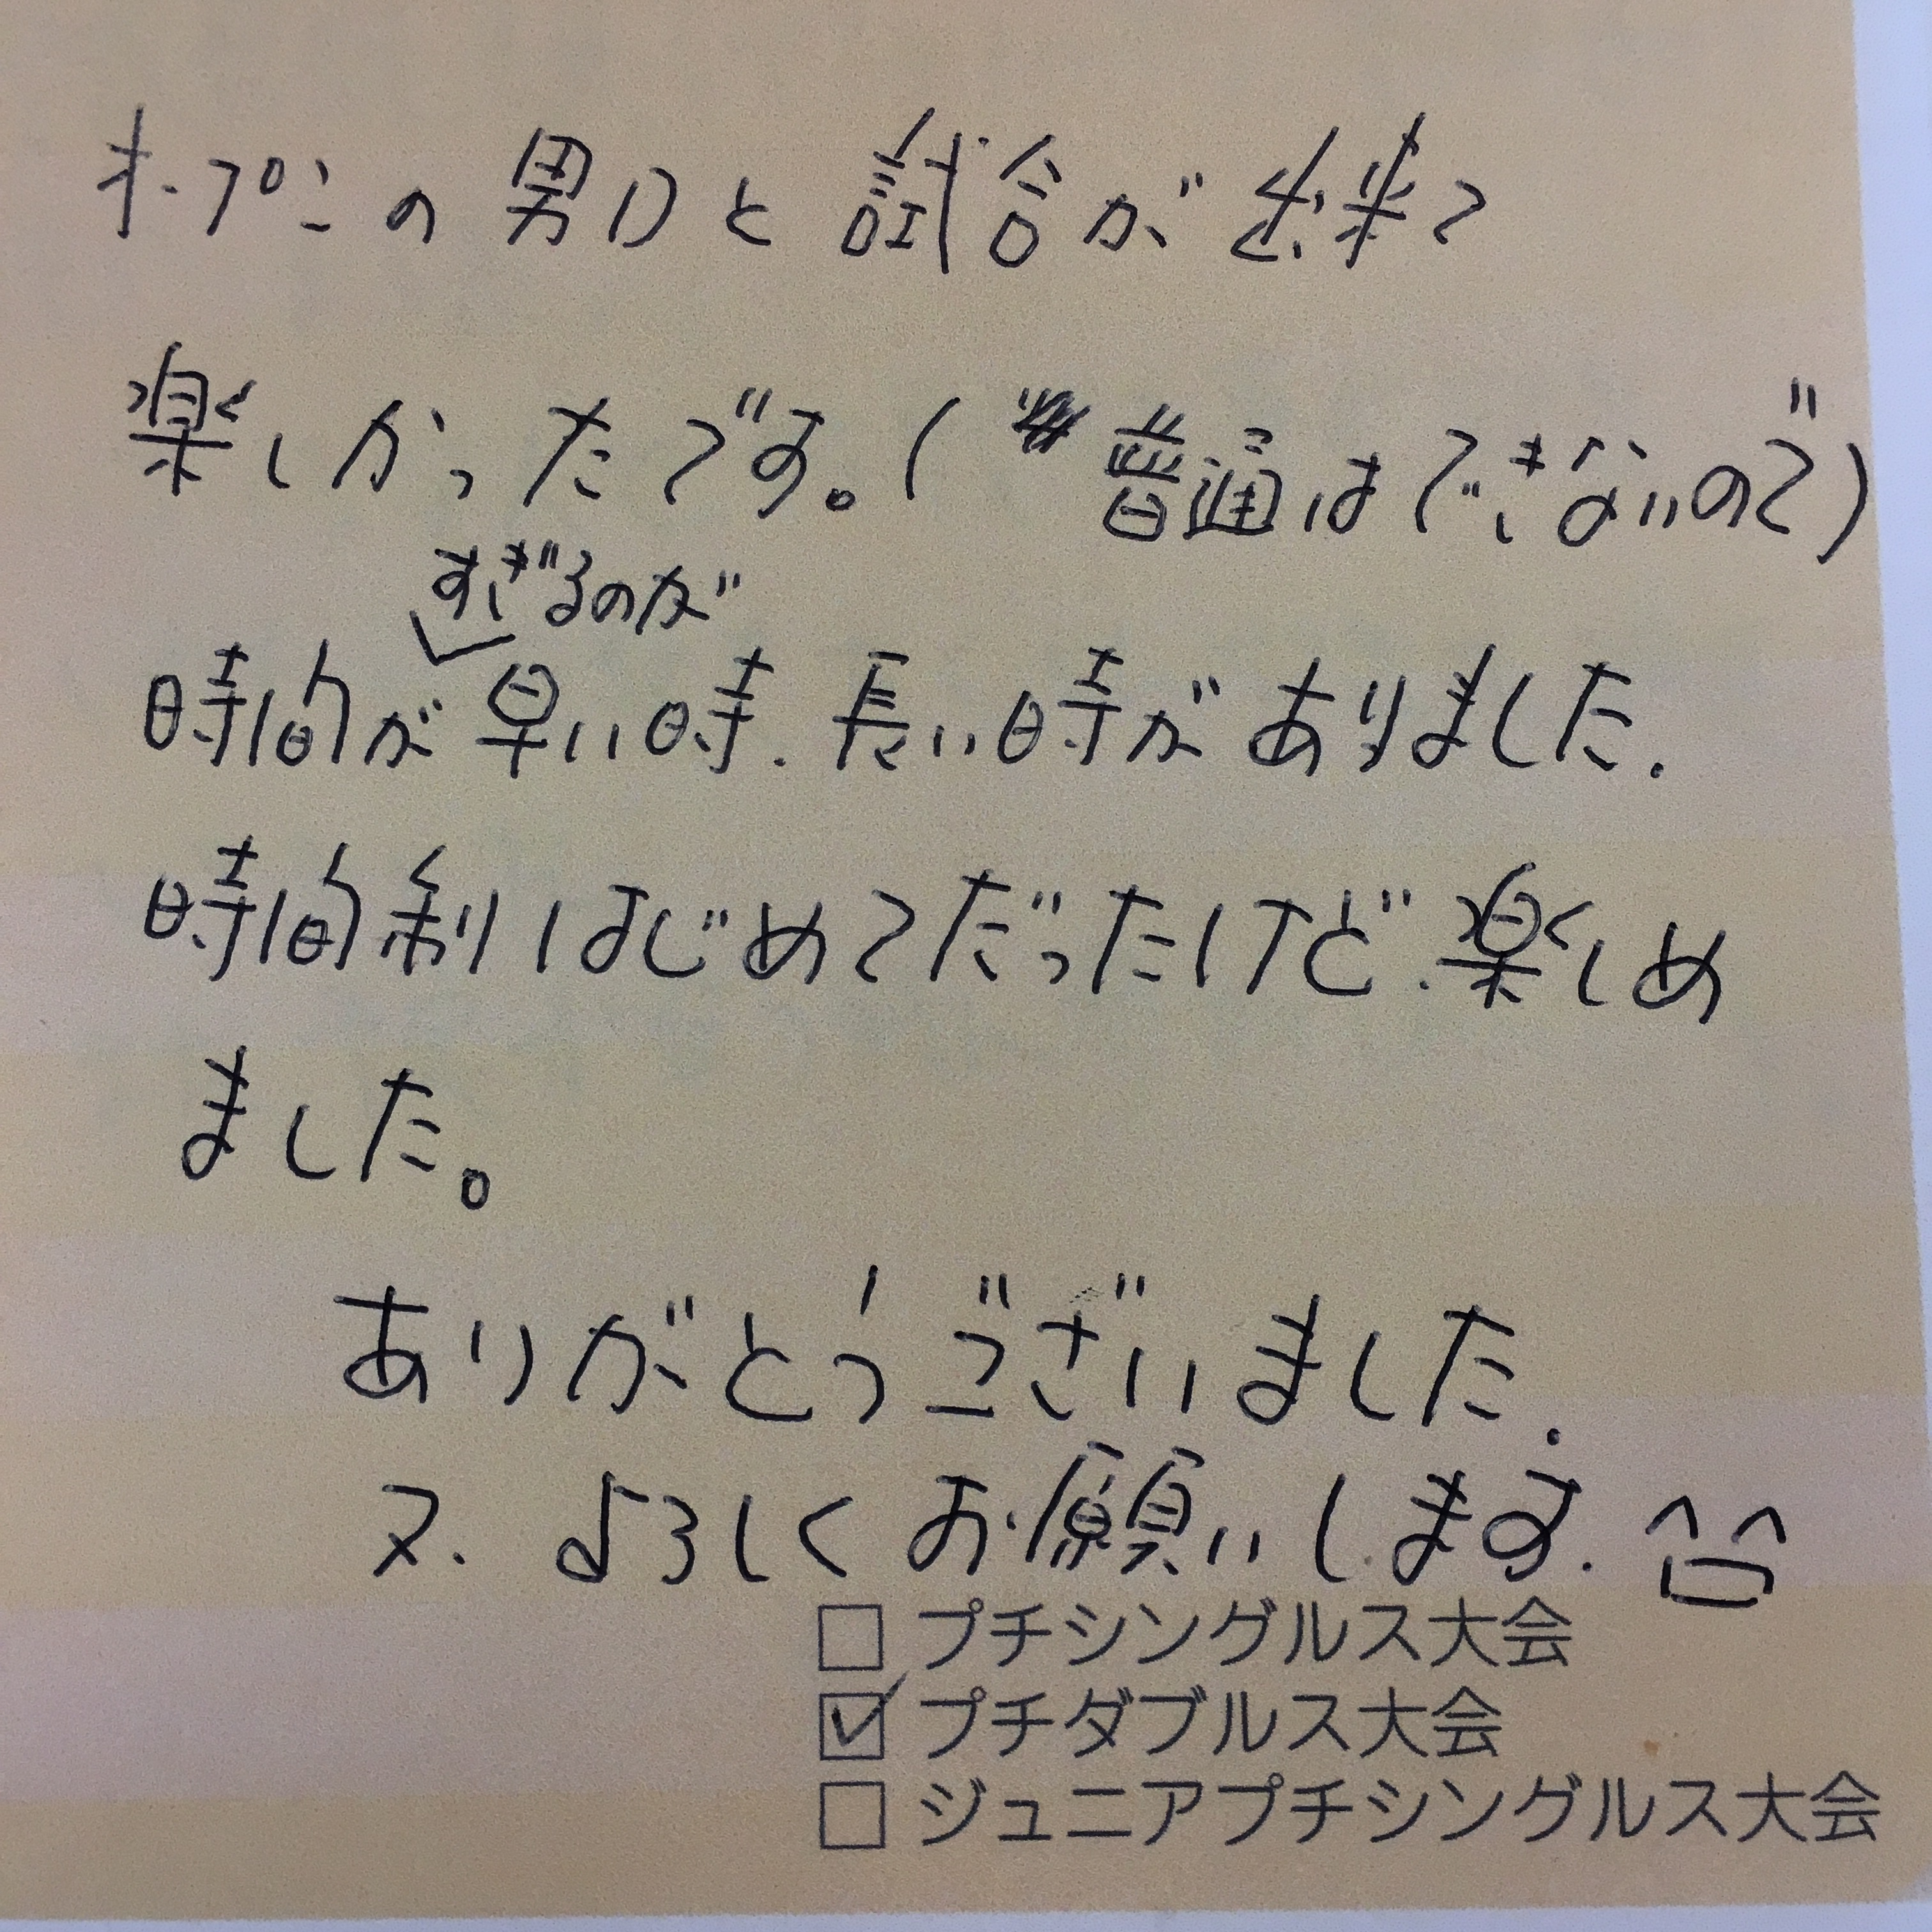 オープンの男Dと試合が出来て
楽しかったです。(普通はできないので)
すぎるのが
時間が早い時、長い時がありました.
時間制はじめてだったけど、楽しめ
ました。
ありがとうございました.
又、よろしくお願いします. ^^
□ プチシングルス大会
☑ プチダブルス大会
□ ジュニアプチシングルス大会